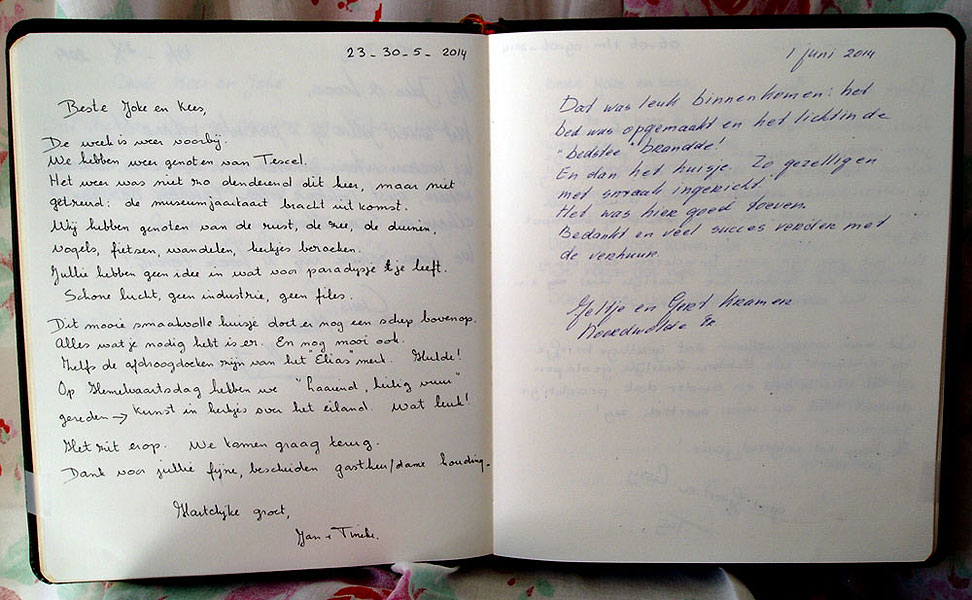 23-30-5-2014
Beste Joke en Kees,
De week is weer voorbij.
We hebben weer genoten van Texel.
Het weer was niet zo denderend dit keer, maar niet
getreurd: de museumjaarkaart bracht uitkomst.
Wij hebben genoten van de rust, de zee, de duinen,
vogels, fietsen, wandelen, kerkjes bezoeken.
Jullie hebben geen idee in wat voor paradijsje je leeft.
Schone lucht, geen industrie, geen files.
Dit mooie smaakvolle huisje doet er nog een schep bovenop.
Alles wat je nodig hebt is er. En nog mooi ook.
Zelfs de afdroogdoeken zijn van het "Elias" merk. Hulde!
Op Hemelvaartsdag hebben we "laaiend, heilig vuur"
gereden → kunst in kerkjes over het eiland. Wat leuk!
Het zit erop. We komen graag terug.
Dank voor jullie fijne, bescheiden gastheer/dame houding-
Hartelijke groet,
Jan + Tineke.
1 juni 2014
Dat was leuk binnenkomen: het
bed was opgemaakt en het licht in de
"bedstee" brandde!
En dan het huisje. Zo gezellig en
met smaak ingericht.
Het was hier goed toeven.
Bedankt en veel succes verder met
de verhuur.
Geltje en Gert Kramer
Noordwolde Fr